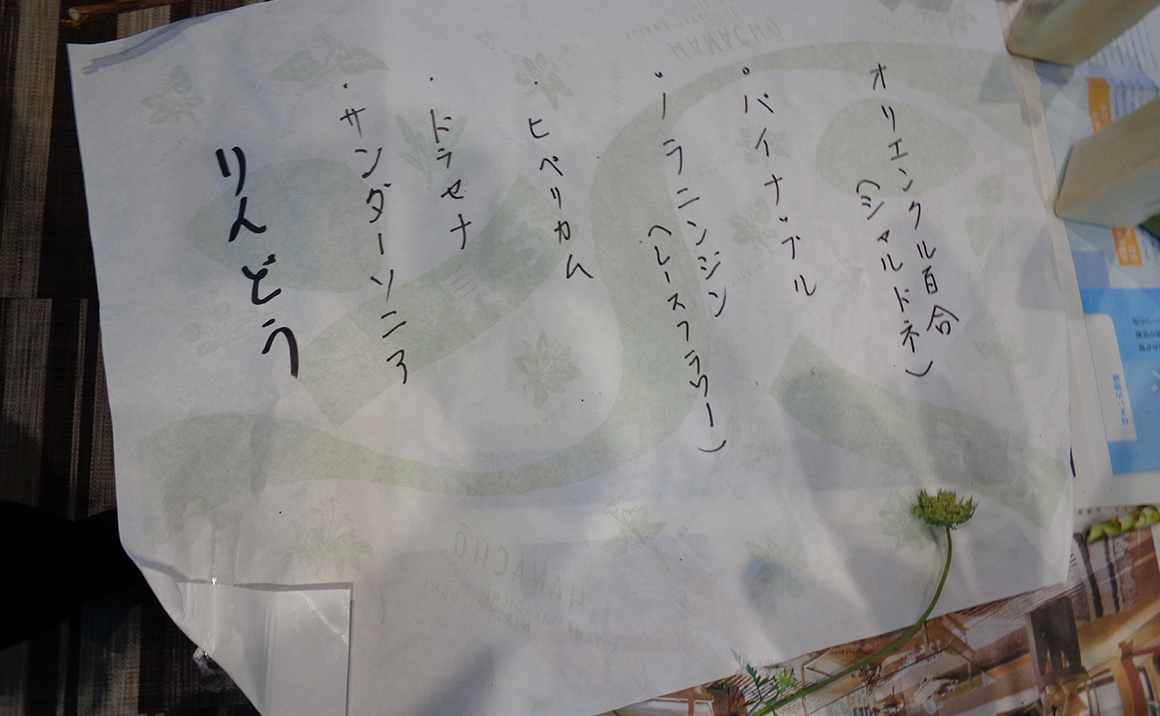 オリエンタル百合
(シャルドネ)
・パイナプル
・ノラニンジン
(レースフラワー)
・ヒペリカム
・ドラセナ
・サンダーソニア
りんどう
HANACHŌ
HANACHŌ